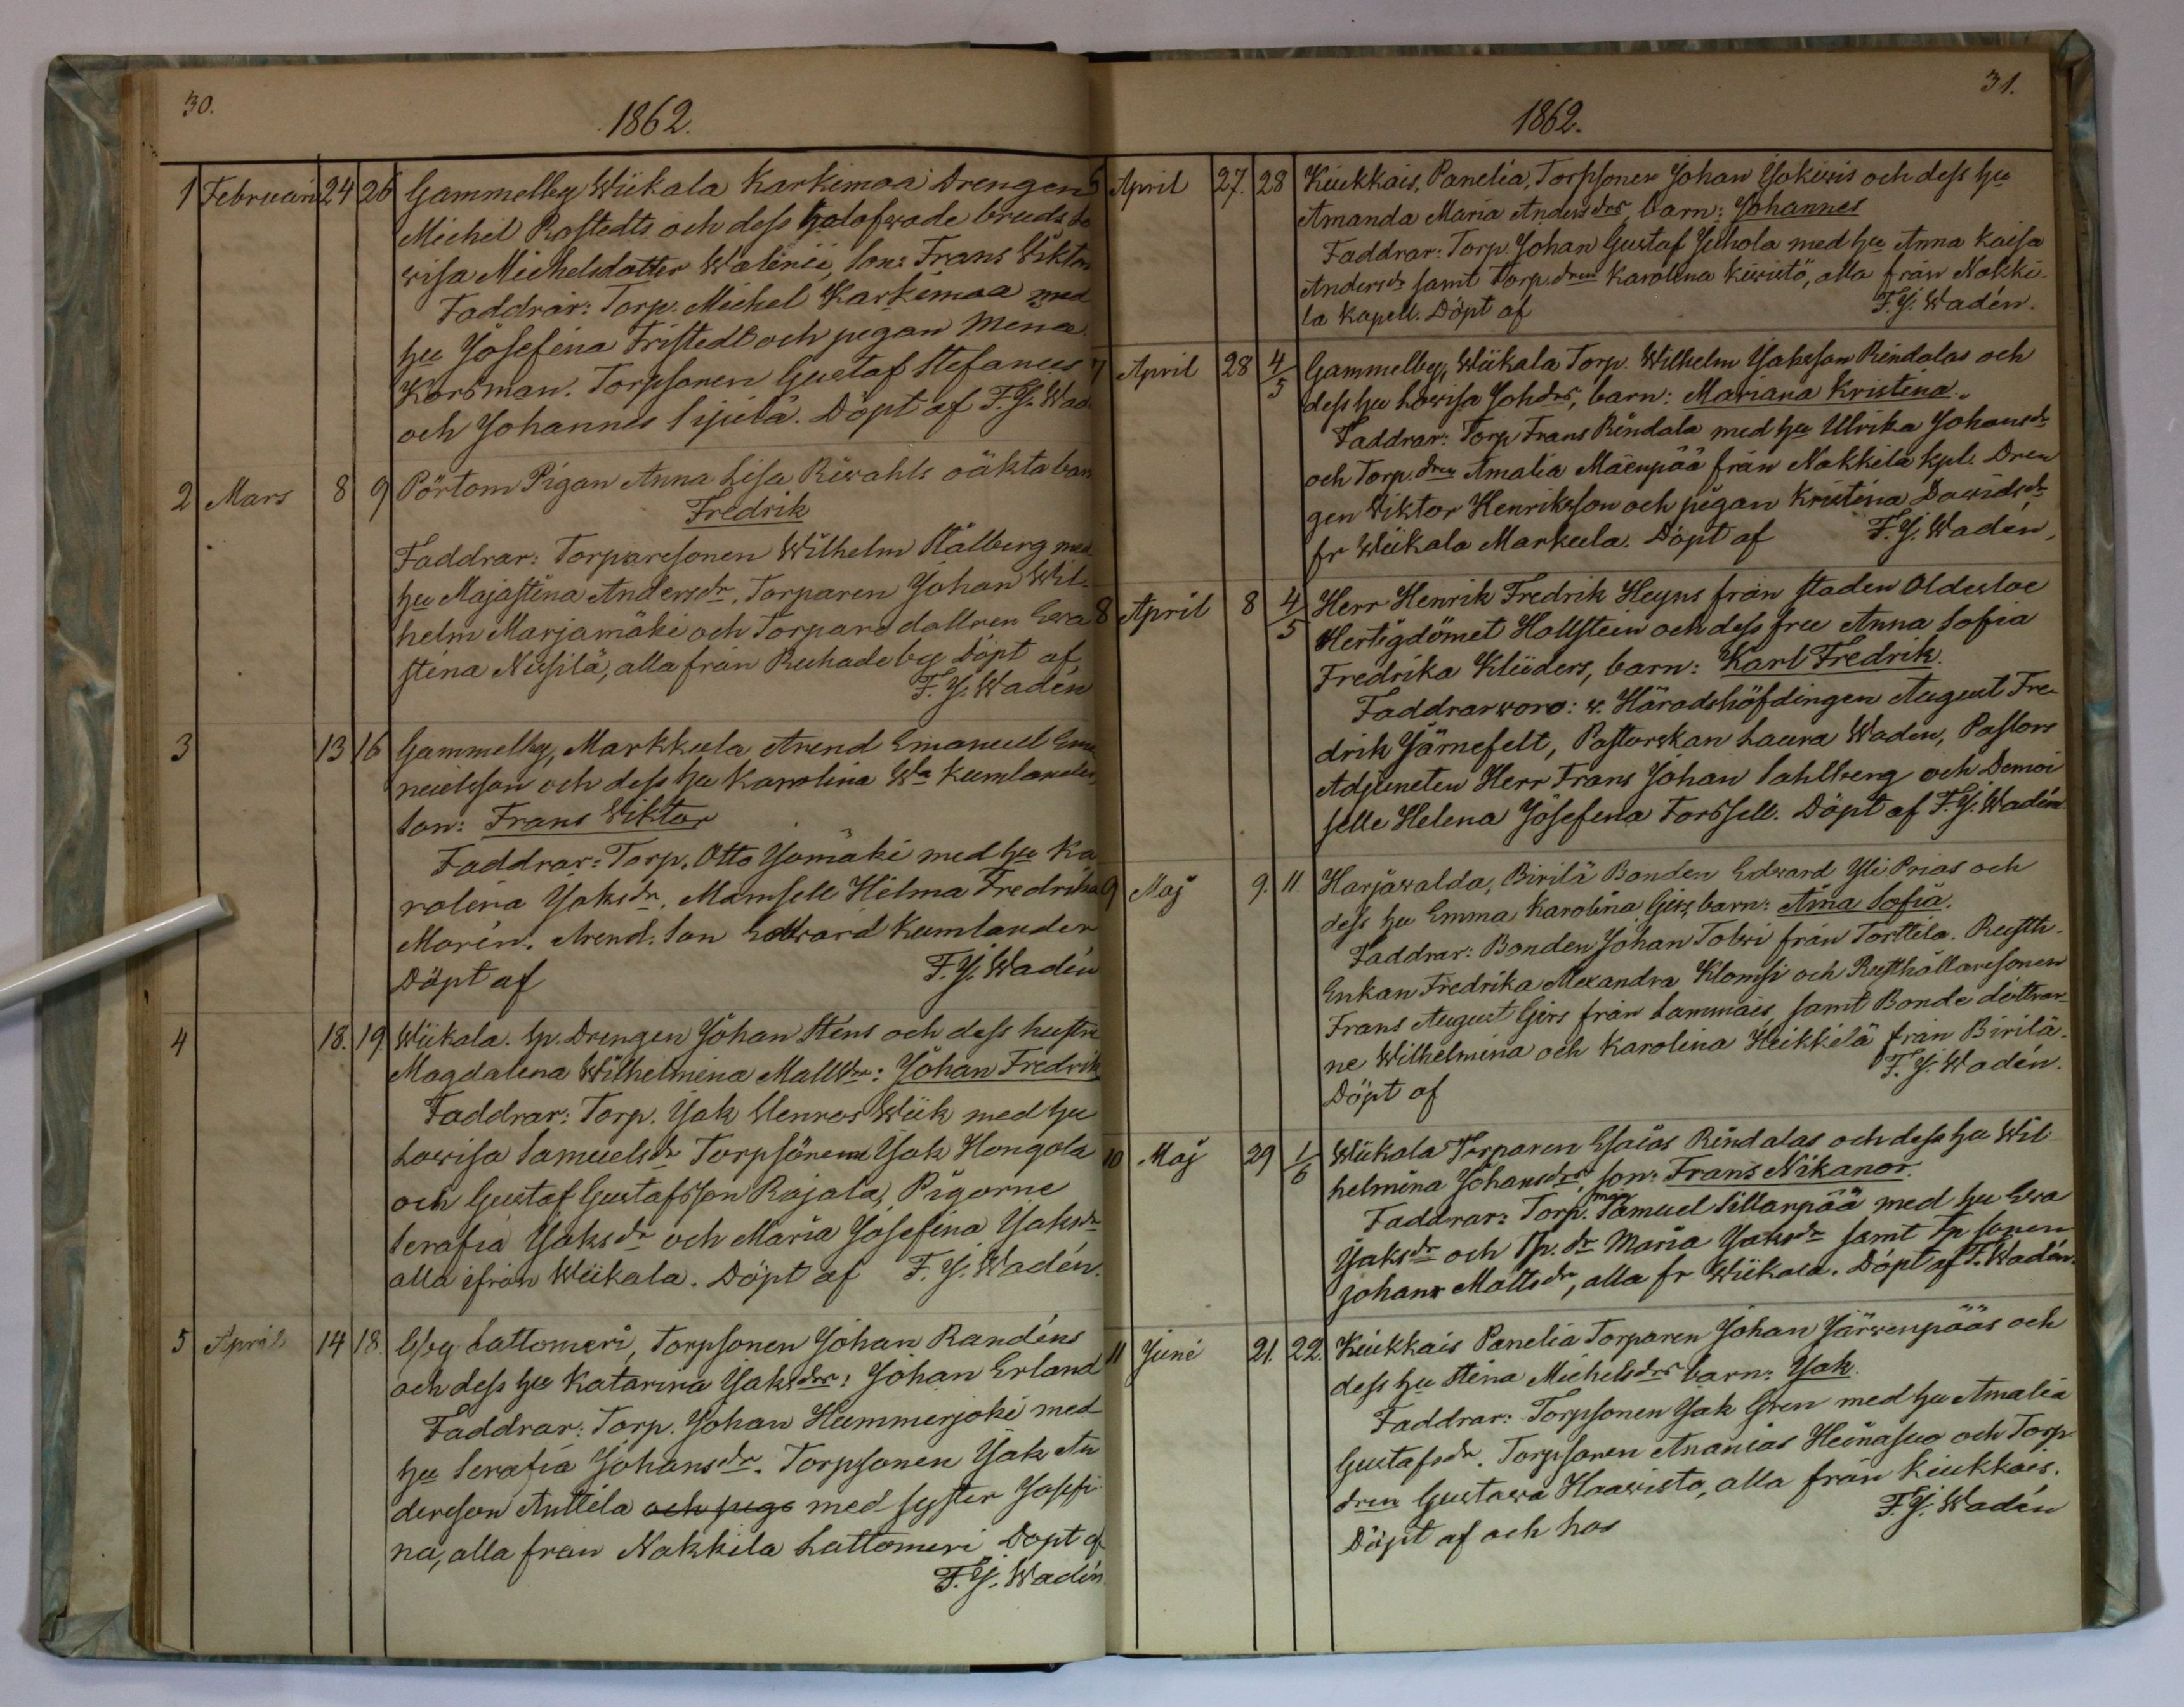 30.
1862.
1 Februari 24 26 Gammelby Wiikala Karkimaa Drengen
Michel Rostedts och dess trolofwade bruds Lo
wisa Michelsdotter Walenii, son: Frans Wiktor
Faddrar: Torp. Michel Karkimaa med
hu Josefina Fristedt och pigan Mina
Korsman. Torpsonen Gustaf Stefanus
och Johannes Sijpilä. Döpt af F.J. Wad
2 Mars 8 9 Pörtom Pigan Anna Lisa Riwahls oäkta barn
Fredrik
Faddrar: Torparesonen Wilhelm Stålberg med
hu Majastina Andersdr, Torparen Johan Wil-
helm Marjamäki och Torpare dottren Ewa
stina Niisilä, alla från Ruhade by Döpt af
F.J. Wadén
3 13 16 Gammelby, Markkula Arend Emanuel Ema
nuelsson och dess hu Karolina Wa Kumlander
son: Frans Wiktor
Faddrar: Torp. Otto Jomäki med hu Ka
rolina Jaksdr, Mamsell Hilma Fredrika
Morén. Arend. son Edward Kumlander
Döpt af F.J. Wadén
4 18. 19. Wiikala. Sp. Drengen Johan Stens och dess hustru
Magdalena Wilhelmina Mallttr: Johan Fredrik
Faddrar: Torp. Jak Henrers Wiik med hu
Lowisa Samuelsdr Torpsönerne Jak Hongola
och Gustaf Gustafsson Rajala, Pigorne
Serafia Jaksdr och Maria Josefina Jaksdr
alla ifrån Wiikala. Döpt af F.J. Wadén.
5 April 14 18. Gby Lattomeri, Torpsonen Johan Randéns
och dess hu Katarina Jaksdrs: Johan Erland
Faddrar: Torp. Johan Hammerjoki med
hu Serafia Johansdr. Torpsonen Jak An
dersson Anttila och piga med syster Josefi
na, alla från Nakkila Lattomeri Döpt af
F.J. Wadén
31.
1862.
April 27. 28 Kiukkais, Panelia, Torpsonen Johan Jokiwis och dess hu
Amanda Maria Andersdrs, barn: Johannes
Faddrar: Torp. Johan Gustaf Juhola med hu Anna Kaisa
Andersdr samt Torp.dren Karolina Kiwistö, alla från Nakki-
la Kapell. Döpt af F.J. Wadén.
7 April 28 4/5 Gammelby, Wiikala Torp. Wilhelm Jaksson Rindalas och
dess hu Lowisa Johdrs, barn: Mariana Kristina.
Faddrar: Torp Frans Rindala med hu Ulrika Johansdr
och Torp. dren Amalia Mäenpää från Nakkila kpl. Dren
gen Wiktor Henriksson och pigan Kristina Dawidsdr
fr Wiikala Markula. Döpt af F.J. Wadén,
8 April 8 4/5 Herr Henrik Fredrik Heyns från staden Oldesloe
Hertigdömet Hollstein och dess fru Anna Sofia
Fredrika Klüders, barn: Karl Fredrik.
Faddrar woro: v. Häradshöfdingen August Fre-
drik Järnefelt, Pastorskan Laura Waden, Pastors
Adjuncten Herr Frans Johan Sahlberg och Demoi
selle Helena Josefina Forssell. Döpt af F.J. Wadén
9 Maj 9. 11. Harjawalda, Birilä Bonden Edward Yli Prias och
dess hu Emma Karolina Girs, barn: Aina Sofia.
Faddrar: Bonden Johan Tolwi från Torttila. Rusth.
Enkan Fredrika Alexandra Klomsi och Rusthållaresonen
Frans August Girs från Lammais, samt Bonde döttrar-
ne Wilhelmina och Karolina Heikkilä från Birilä.
Döpt af F.J. Wadén.
10 Maj 29 1/6 Wiikala Torparen Esaias Rindalas och dess hu Wil
helmina Johansdrs, son: Frans Nikanor.
Faddrar: Torp. män Samuel Sillanpää med hu Ewa
Jaksdr och Tp. dr Maria Jaksdr samt Tp sonen
Johans Mattsdr, alla fr Wiikala. Döpt af F. Wadén.
11 Juni 21. 22. Kiukkais Panelia Torparen Johan Järwenpääs och
dess hu Stina Michelsdrs barn: Jak.
Faddrar: Torpsonen Jak Gren med hu Amalia
Gustafsdr. Torpsonen Ananias Heinäsuo och Torp
dren Gustawa Haawisto, alla från Kiukkais.
Döpt af och hos F.J. Wadén